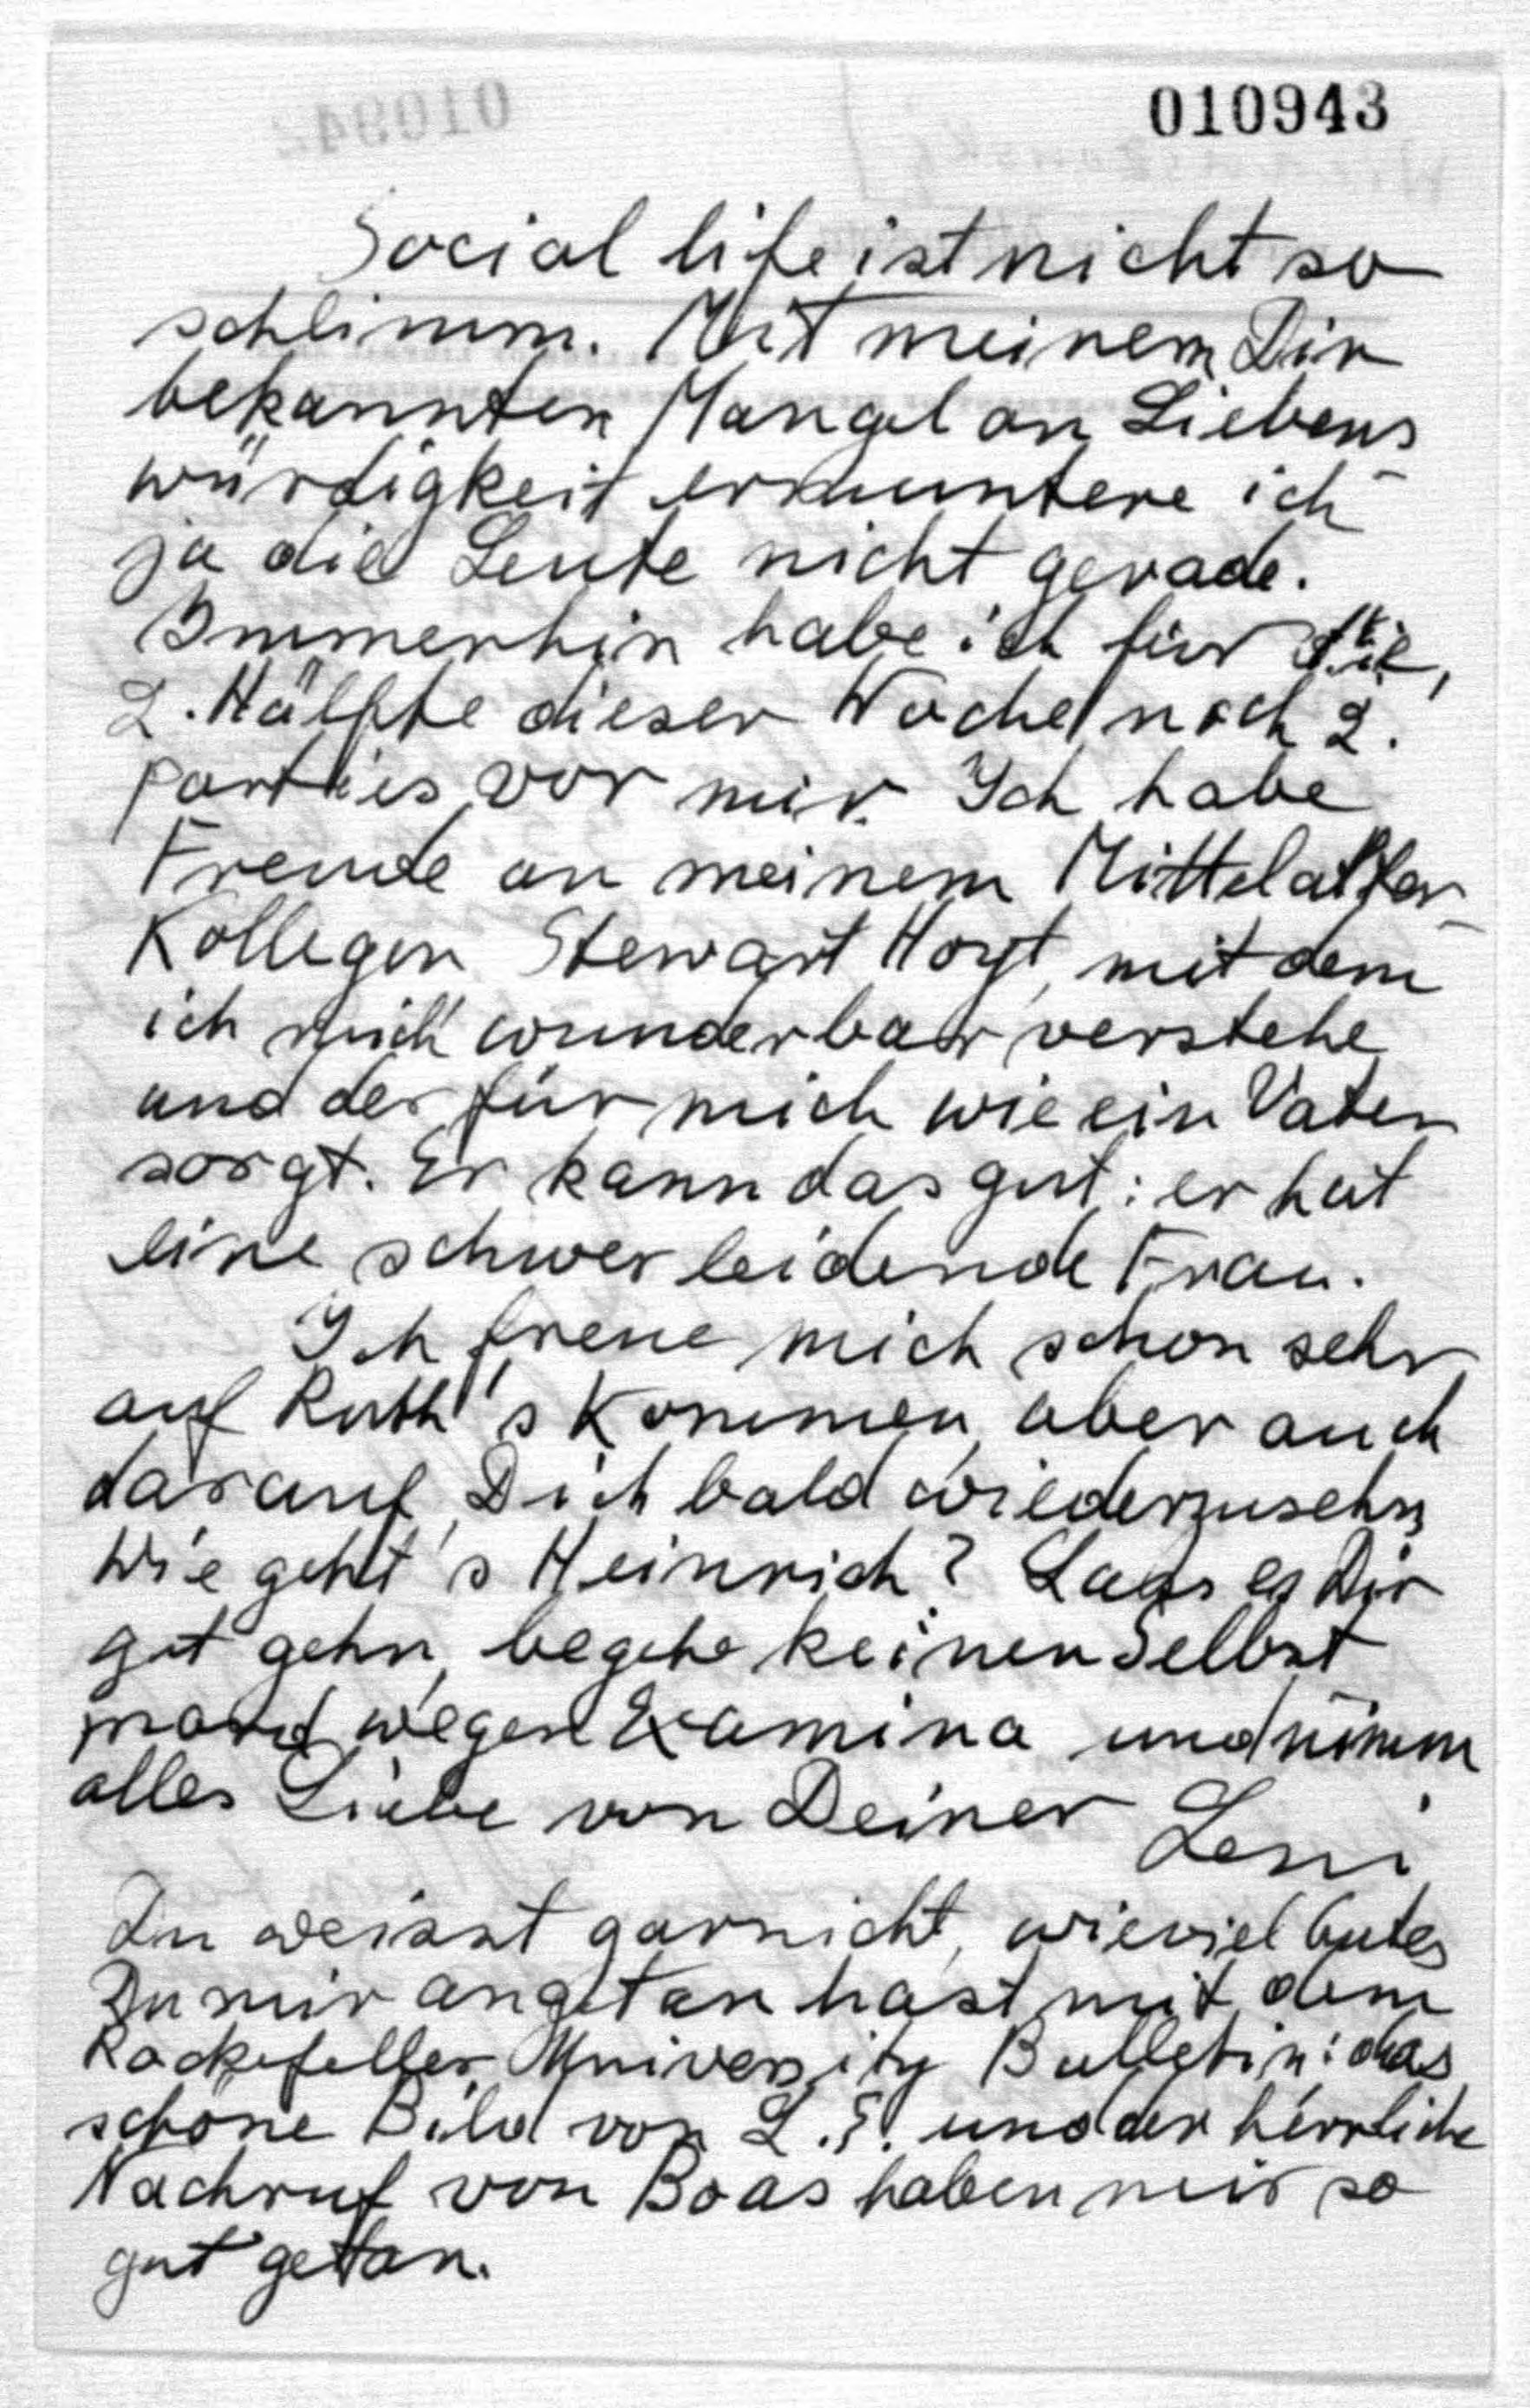 010943
Social life ist nicht so
schlimm. Mit meinem Dir
bekannten Mangel an Liebens
würdigkeit ermuntere ich
ja die Leute nicht gerade.
Immerhin habe ich für die
2. Hälfte dieser Woche noch 2
parties vor mir. Ich habe
Freude an meinem Mittelalter
Kollegen Stewart Hoyt, mit dem
ich mich wunderbar verstehe
und der für mich wie ein Vater
sorgt. Er kann das gut: er hat
eine schwer leidende Frau.
Ich freue mich schon sehr
auf Ruth's Kommen, aber auch
darauf, Dich bald wiederzusehn.
Wie geht's Heinrich? Lass es Dir
gut gehn, begehe keinen Selbst
mord wegen Examina und nimm
alles Liebe von Deiner Leni
Du weisst garnicht, wieviel Gutes
Du mir angetan hast mit dem
Rockefeller University Bulletin: das
schöne Bild von L.E. und der herrliche
Nachruf von Boas haben mir so
gut getan.